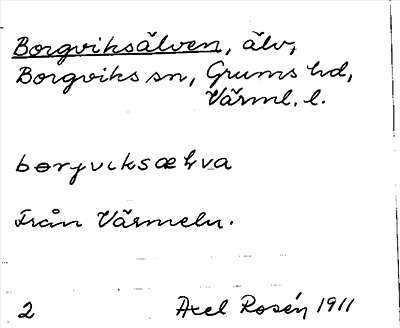 Borgviksälven, älv,
Borgviks sn, Grums hd,
Värml. l.
Från Värmeln.
2 Axel Rosén 1911